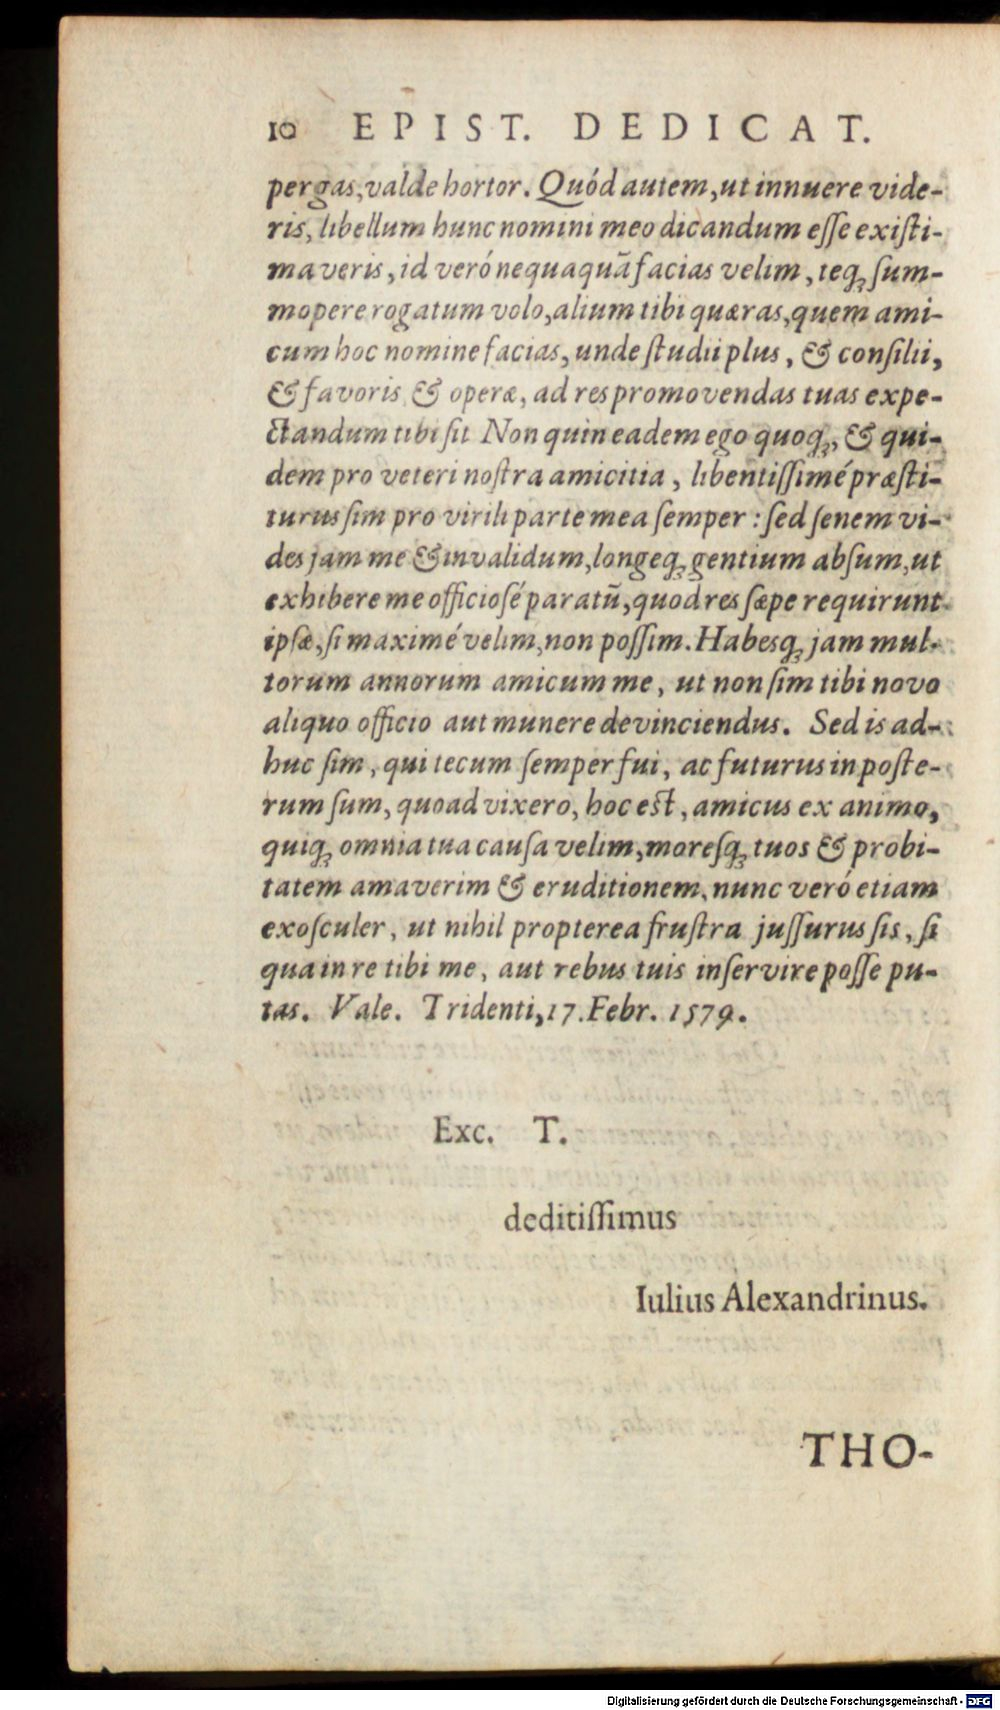 10 EPIST. DEDICAT.
pergas, valde hortor. Quód autem, ut innuere vide-
ris, libellum hunc nomini meo dicandum eſſe exiſti-
maveris, id veró nequaquã facias velim, teq́; ſum-
mopere rogatum volo, alium tibi quæras, quem ami-
cum hoc nomine facias, unde ſtudii plus, & conſilii,
& favoris & operæ, ad res promovendas tuas expe-
ctandum tibi ſit Non quin eadem ego quoq;, & qui-
dem pro veteri noſtra amicitia, libentiſſimé præſti-
turus ſim pro virili parte mea ſemper: ſed ſenem vi-
des jam me & invalidum, longeq; gentium abſum, ut
exhibere me officioſé paratũ, quod res ſæpe requirunt
ipſæ, ſi maximé velim, non poſſim. Habesq; jam mul-
torum annorum amicum me, ut non ſim tibi novo
aliquo officio aut munere devinciendus. Sed is ad-
huc ſim, qui tecum ſemper fui, ac futurus in poſte-
rum ſum, quoad vixero, hoc est, amicus ex animo,
quiq; omnia tua cauſa velim, moreſq; tuos & probi-
tatem amaverim & eruditionem, nunc veró etiam
exoſculer, ut nihil propterea fruſtra juſſurus ſis, ſi
qua in re tibi me, aut rebus tuis inſervire poſſe pu-
tas. Vale. Tridenti, 17. Febr. 1579.
Exc. T.
deditiſſimus
Iulius Alexandrinus.
THO-
Digitalisierung gefördert durch die Deutsche Forschungsgemeinschaft - DFG